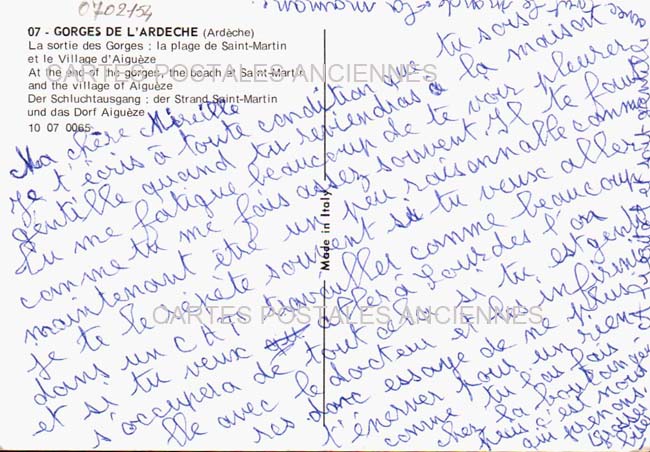 0702154
07 - GORGES DE L'ARDECHE (Ardèche)
La sortie des Gorges : la plage de Saint-Martin
et le Village d'Aiguèze
At the end of the gorges, the beach at Saint-Martin
and the village of Aiguèze
Der Schluchtausgang : der Strand Saint-Martin
und das Dorf Aiguèze
10 07 0065
CARTES POSTALES ANCIENNES
Made in Italy
CARTES POSTALES ANCIENNES
Ma chère Mireille
Je t'écris à toute condition que tu sois
gentille quand tu reviendras à la maison
Tu me fatigue beaucoup de te voir pleurer
comme tu me fais assez souvent Il te faut
maintenant être un peu raisonnable comme
Je te le répète souvent si tu veux aller
dans un C A T travailler comme beaucoup
et si tu veux aller à Lourdes l'on
s'occupera de tout cela si tu est gentille
avec le docteur et les infirmières
donc essaye de ne plus
t'énerver pour un rien
comme tu fais